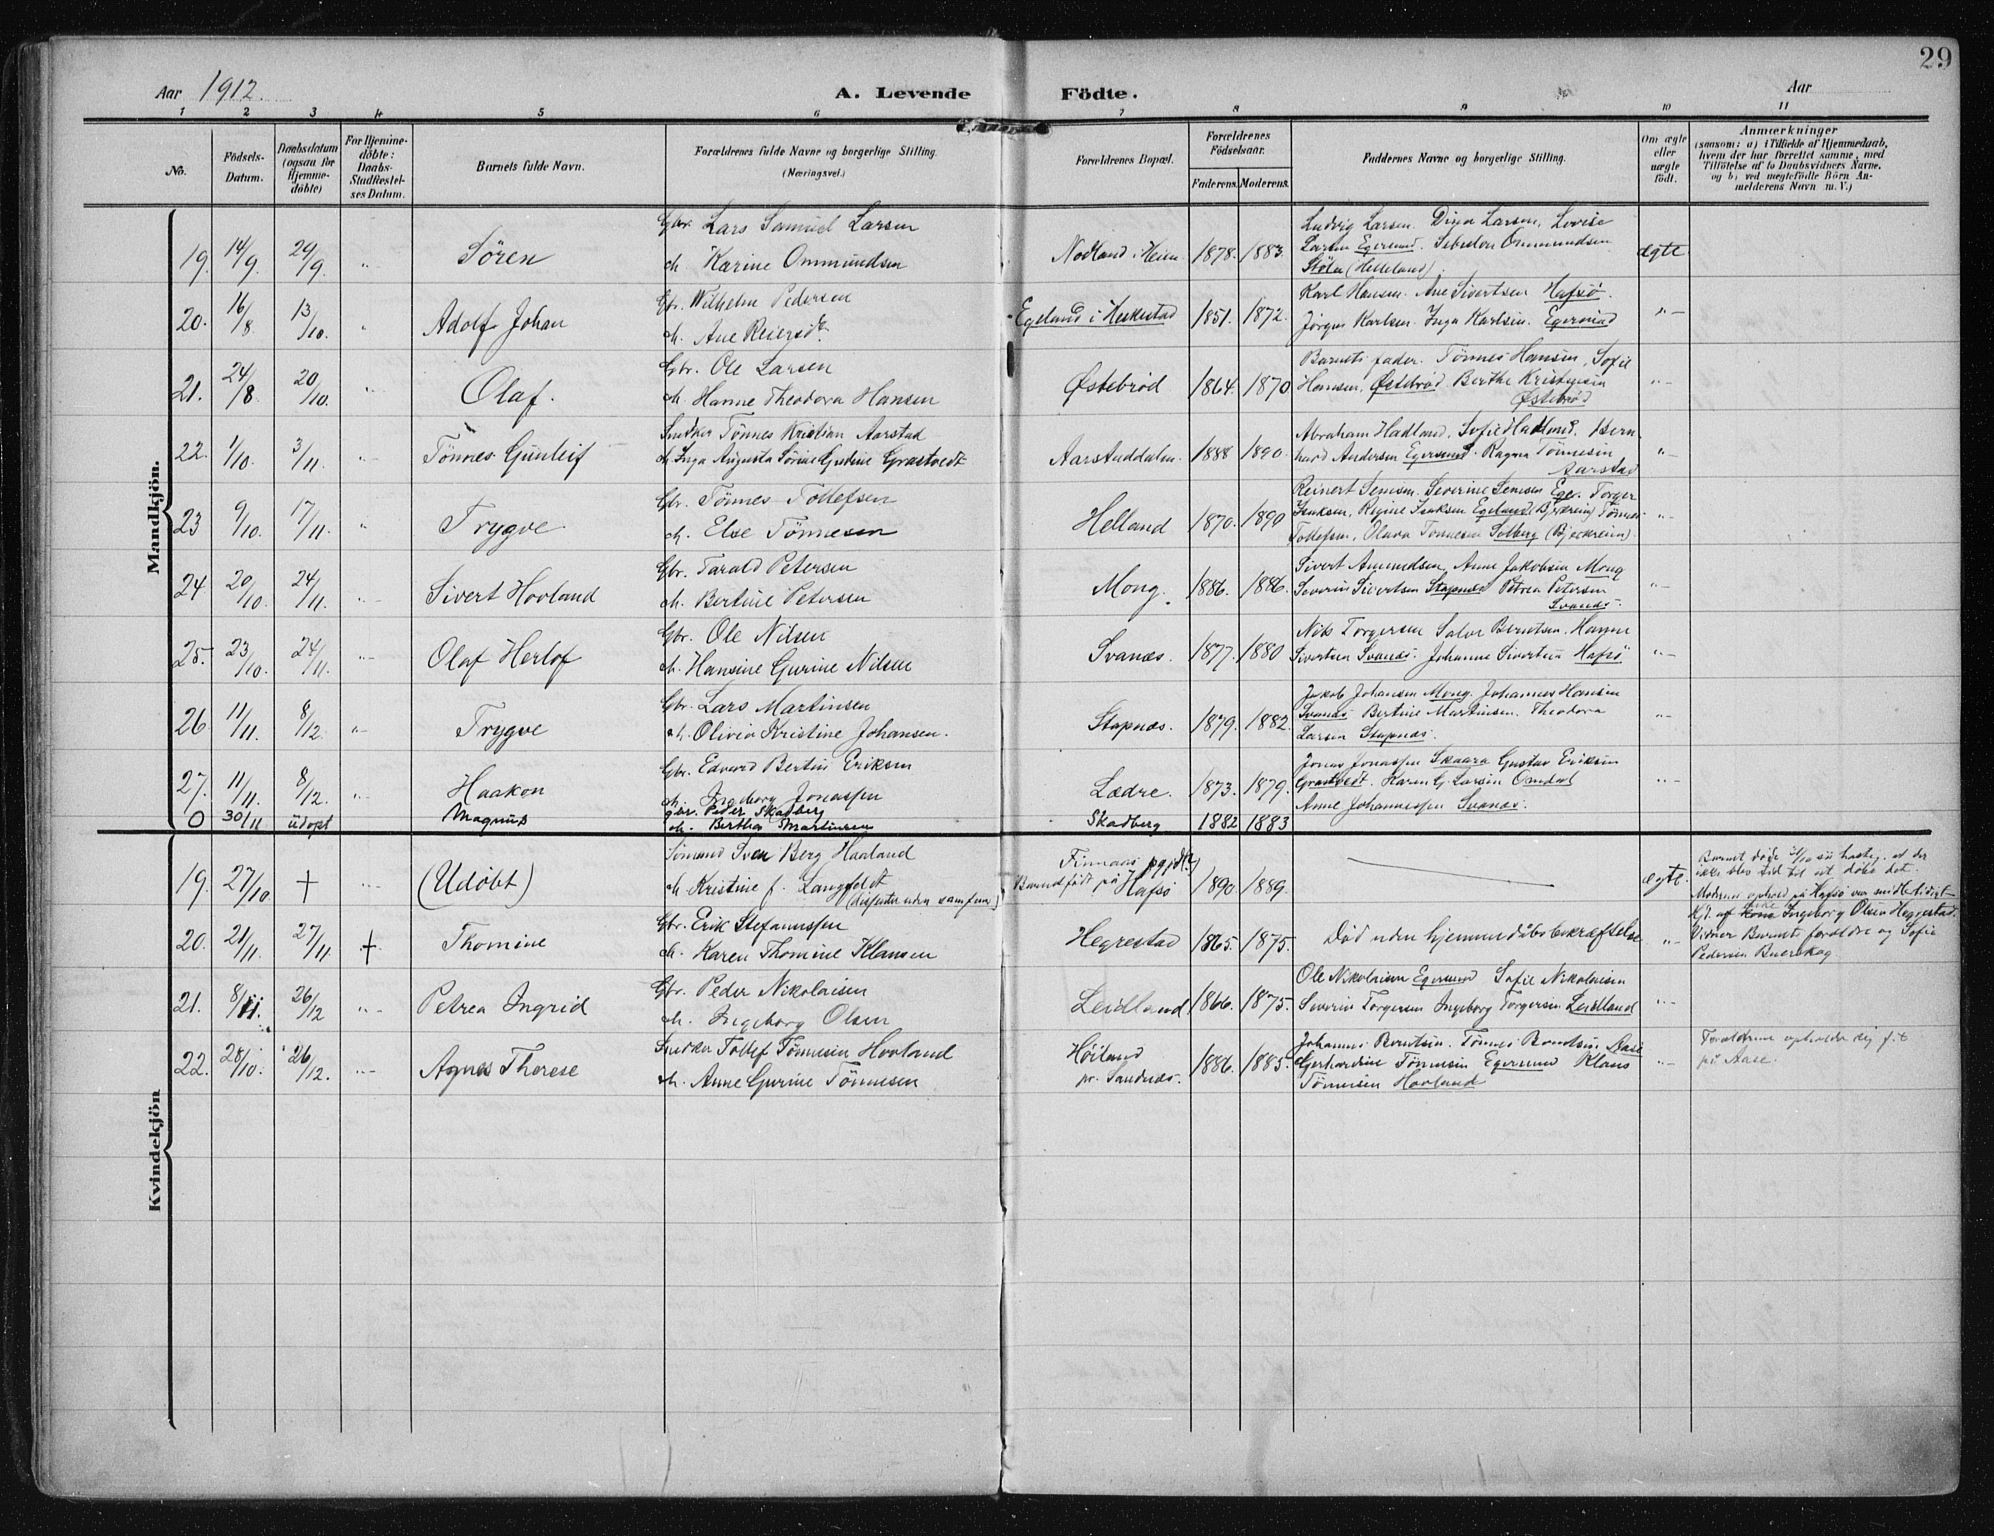 29
Aar 1912. A. Levende Födte. Aar
1 2 3 4 5 6 7 8 9 10 11
No.
Födsels-Datum.
Daabsdatum (ogsaa for Hjemmedöbte)
For Hjemmedöbte: Daabs-Stadfæstelses Datum.
Barnets fulde Navn.
Forældrenes fulde Navne og borgerlige Stilling. (Næringsvei.)
Forældrenes Bopæl.
Forældrenes Födselsaar.
Faderens. Moderens.
Faddernes Navne og borgerlige Stilling.
Om ægte eller uægte födt.
Anmærkninger
(saasom: a) i Tilfælde af Hjemmedaab, hvem der har forrettet samme, med Tilföielse af to Daabsvidners Navne, og b) ved uægtefödte Börn Anmelderens Navn m. V.)
Mandkjön.
19. 14/9. 29/9. „ Sören Gbr. Lars Samuel Larsen
Karine Ommundsen Nodland i Heien 1878. 1883. Ludvig Larsen. Dina Larsen, Lovise
Larsen Egersund. Ommundsen
(Helleland). ægte
20. 16/8 13/10. „ Adolf Johan Gbr. Wilhelm Pedersen
Ane Reiersd. Egeland i Heskestad 1851. 1872. Karl Hansen. Ane Sivertsen Hafsø.
Jørgen Karlsen. Inga Karlsen. Egersund „-
21. 24/8 20/10. „ Olaf. Gbr. Ole Larsen
Hanne Theodora Hansen Østebrød 1864. 1870 Barnets fader. Tønnes Hansen, Sofie
Hansen, Østebrød. Berthe Kristensen
Østebrød „-
22. 1/10. 3/11. „ Tönnes Gunleif Snedker Tønnes Kristian Aarstad
Inga Augusta Sörine Gurine Grastvedt Aarstaddalen. 1888 1890. Abraham Hadland. Sofie Hadland. Bernhard Andersen Egersund. Ragna Tönnesen
Aarstad „-
23 9/10. 17/11. „ Trygve Gbr. Tönnes Tollefsen
Else Tönnesen Helland 1870. 1890 Reinert Semsen. Severine Semsen Eger. Torger
Isaksen, Regine Isaksen Egeland, (Bjerkreim) Tønnes
Tollefsen, Olava Tönnesen Solberg (Bjerkreim). „-
24 20/10 24/11. „- Sivert Hovland Gbr. Tarald Petersen
Bertine Petersen Mong. 1886. 1886. Sivert Amundsen, Anne Jakobsen Mong
Severin Sivertsen Stapnæs Petrea Petersen
Svanes. „-
25. 23/10. 24/11. „- Olaf Herlof Gbr. Ole Nilsen
Hansine Gurine Nilsen Svanæs. 1877. 1880 Nils Torgersen Salve Berntsen. Hanne
Sivertsen Svanæs. Johanne Sivertsen Hafsø „-
26. 11/11. 8/12. „- Trygve Gbr. Lars Martinsen
Olivia Kristine Johansen. Stapnæs. 1879. 1882. Jakob Johansen Mong. Johannes Hansen
Svanæs Bertine Martinsen. Theodora
Larsen Stapnæs. „-
27. 11/11. 8/12. „- Haakon Gbr. Edvard Bertin Eriksen
Ingeborg Jonassen Lædre. 1873. 1879. Jonas Jonassen Skaara Gustav Eriksen
Grastvedt. Karen G. Larsen Omdal
Anne Johannessen Svanæs. „-
0 30/11 udøpt Magnus gbr. Peder Skadberg
Berthe Martinsen Skadberg 1882 1883
Kvindekjön
19. 27/10. + „- (Udöbt) Sömand Sven Berg Haaland
Kristine f. Langfeldt
Finnaas pgjd.
Barnet født på Hafsø 1890. 1889. ægte. Barnet døde så hastig, at der
ikke blev tid til at døbe det.
Moderens ophold på Hafsø var midlertidigt
20. 21/11. 27/11. + Thomine Gbr. Erik Stefanussen
Karen Thomine Klausen Hegrestad 1865. 1875. Död uden hjemmedåbsbekræftelse „- Hjd. af Ingeborg Olsen Heggestad.
Vidner Barnets forældre og Sofie
Pedersen
21. 8/11. 26/12 „- Petrea Ingrid Gbr. Peder Nikolaisen
Ingeborg Olsen Leidland 1866. 1875. Ole Nikolaisen Egersund Sofie Nikolaisen
Severin Torgersen Ingeborg Torgersen Leidland „-
22. 28/10. 26/12. „- Agnes Therese Snedker Tollef Tønnesen Hovland
Anne Gurine Tönnesen Höiland
pr. Sandnæs. 1886. 1885. Johannes Berntsen. Tönnes Berntsen Aase
Gerhardine Tönnesen Egersund Klaus
Tönnesen Hovland „- Forældrene opholder sig
på Aase.